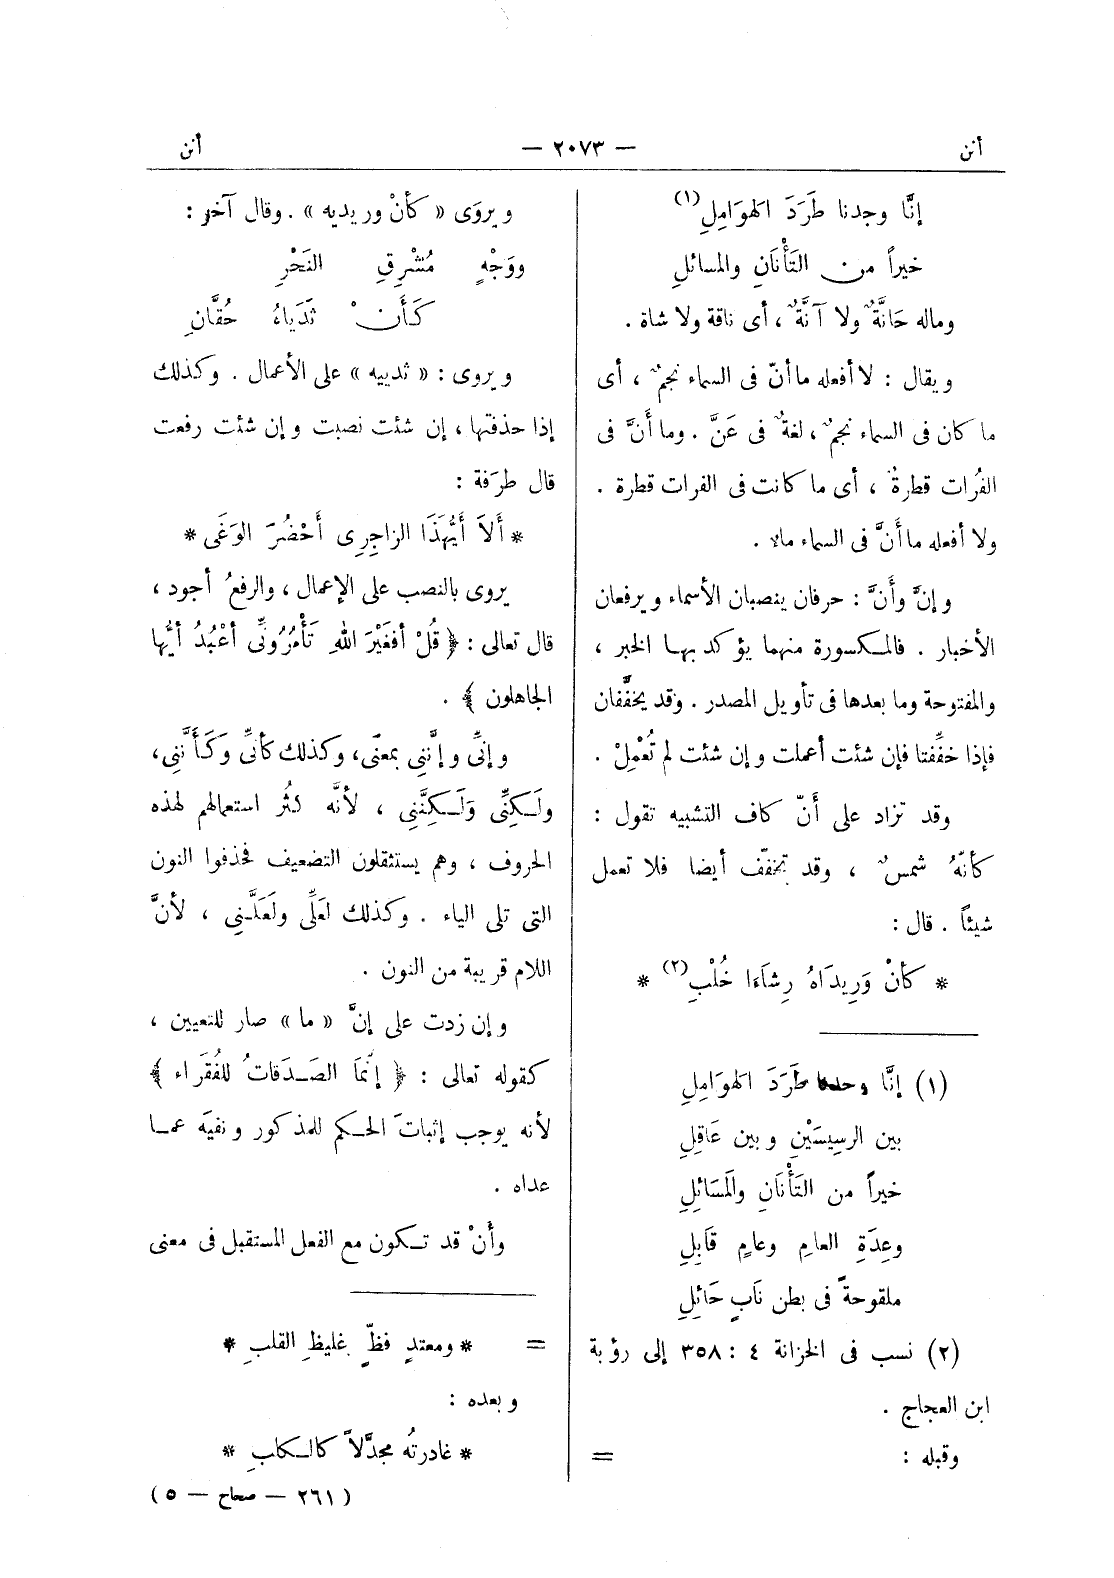 أنن
— ٢٠٧٣ —
أنن
إنَّا وجدنا طَرَدَ الهوَامِلِ (١)
خيراً من التَأْنَانِ والمسائلِ
وماله حَانَّةٌ ولا آنَّةٌ، أى ناقة ولا شاة .
ويقال : لا أفعله ما أنّ فى السماء نجمٌ ، أى
ما كان فى السماء نجمٌ ، لغةٌ فى عَنَّ . وما أَنَّ فى
الفُرات قطرةٌ ، أى ما كانت فى الفرات قطرة .
ولا أفعله ما أَنَّ فى السماء ماء .
وإنَّ وأَنَّ : حرفان ينصبان الأسماء ويرفعان
الأخبار . فالمكسورة منهما يؤكد بها الخبر ،
والمفتوحة وما بعدها فى تأويل المصدر . وقد يخفَّفان
فإذا خفِّفتا فإن شئت أعملت وإن شئت لم تُعْمِلْ .
وقد تزاد على أَنّ كاف التشبيه تقول :
كأنّهُ شمسٌ ، وقد تخفّف أيضا فلا تعمل
شيئاً . قال :
* كأنْ وَرِيدَاهُ رِشَاءَا خُلْبِ (٢) *
(١) إنَّا وجدنا طَرَدَ الهوَامِلِ
بين الرسِيسَيْنِ وبين عَاقِلِ
خيراً من التَأْنَانِ والمَسَائِلِ
وعِدَةِ العامِ وعامٍ قَابِلِ
ملقوحةً فى بطن نَابٍ حَائِلِ
(٢) نسب فى الخزانة ٤ : ٣٥٨ إلى رؤبة
ابن العجاج .
وقبله : =
ويروَى « كأنْ وريديه » . وقال آخر :
ووَجْهٍ مُشْرِقِ النَحْرِ
كَأَنْ ثَدَياهُ حُقَّانِ
ويروى : « ثدييه » على الأعمال . وكذلك
إذا حذفتها ، إن شئت نصبت وإن شئت رفعت
قال طرَفة :
* أَلاَ أَيُّهَذَا الزاجِرِى أَحْضُرَ الوَغَى *
يروى بالنصب على الإعمال ، والرفعُ أجود ،
قال تعالى : ﴿ قُلْ أفغَيْرَ اللهِ تَأْمُرُونِّى أعْبُدُ أيُّها
الجاهلون ﴾ .
وإنِّى وإنَّنِى بمعنًى، وكذلك كأنِّى وَكَأَنَّنِى،
ولَكِنِّى وَلَكِنَّنِى ، لأنَّه كثُر استعمالهم لهذه
الحروف ، وهم يستثقلون التضعيف فحذفوا النون
التى تلى الياء . وكذلك لَعَلِّى ولَعَلَّنِى ، لأنَّ
اللام قريبة من النون .
وإن زدت على إنَّ « ما » صار للتعيين ،
كقوله تعالى : ﴿ إنَّمَا الصَدَقاتُ للفُقَراء ﴾
لأنه يوجب إثباتَ الحكم للمذكور ونفيَه عما
عداه .
وأَنْ قد تكون مع الفعل المستقبل فى معنى
= * ومعتدٍ فظٍّ غليظِ القلبِ *
وبعده :
* غادرتُه مجدَّلاً كالكلبِ *
( ٢٦١ — صحاح — ٥ )